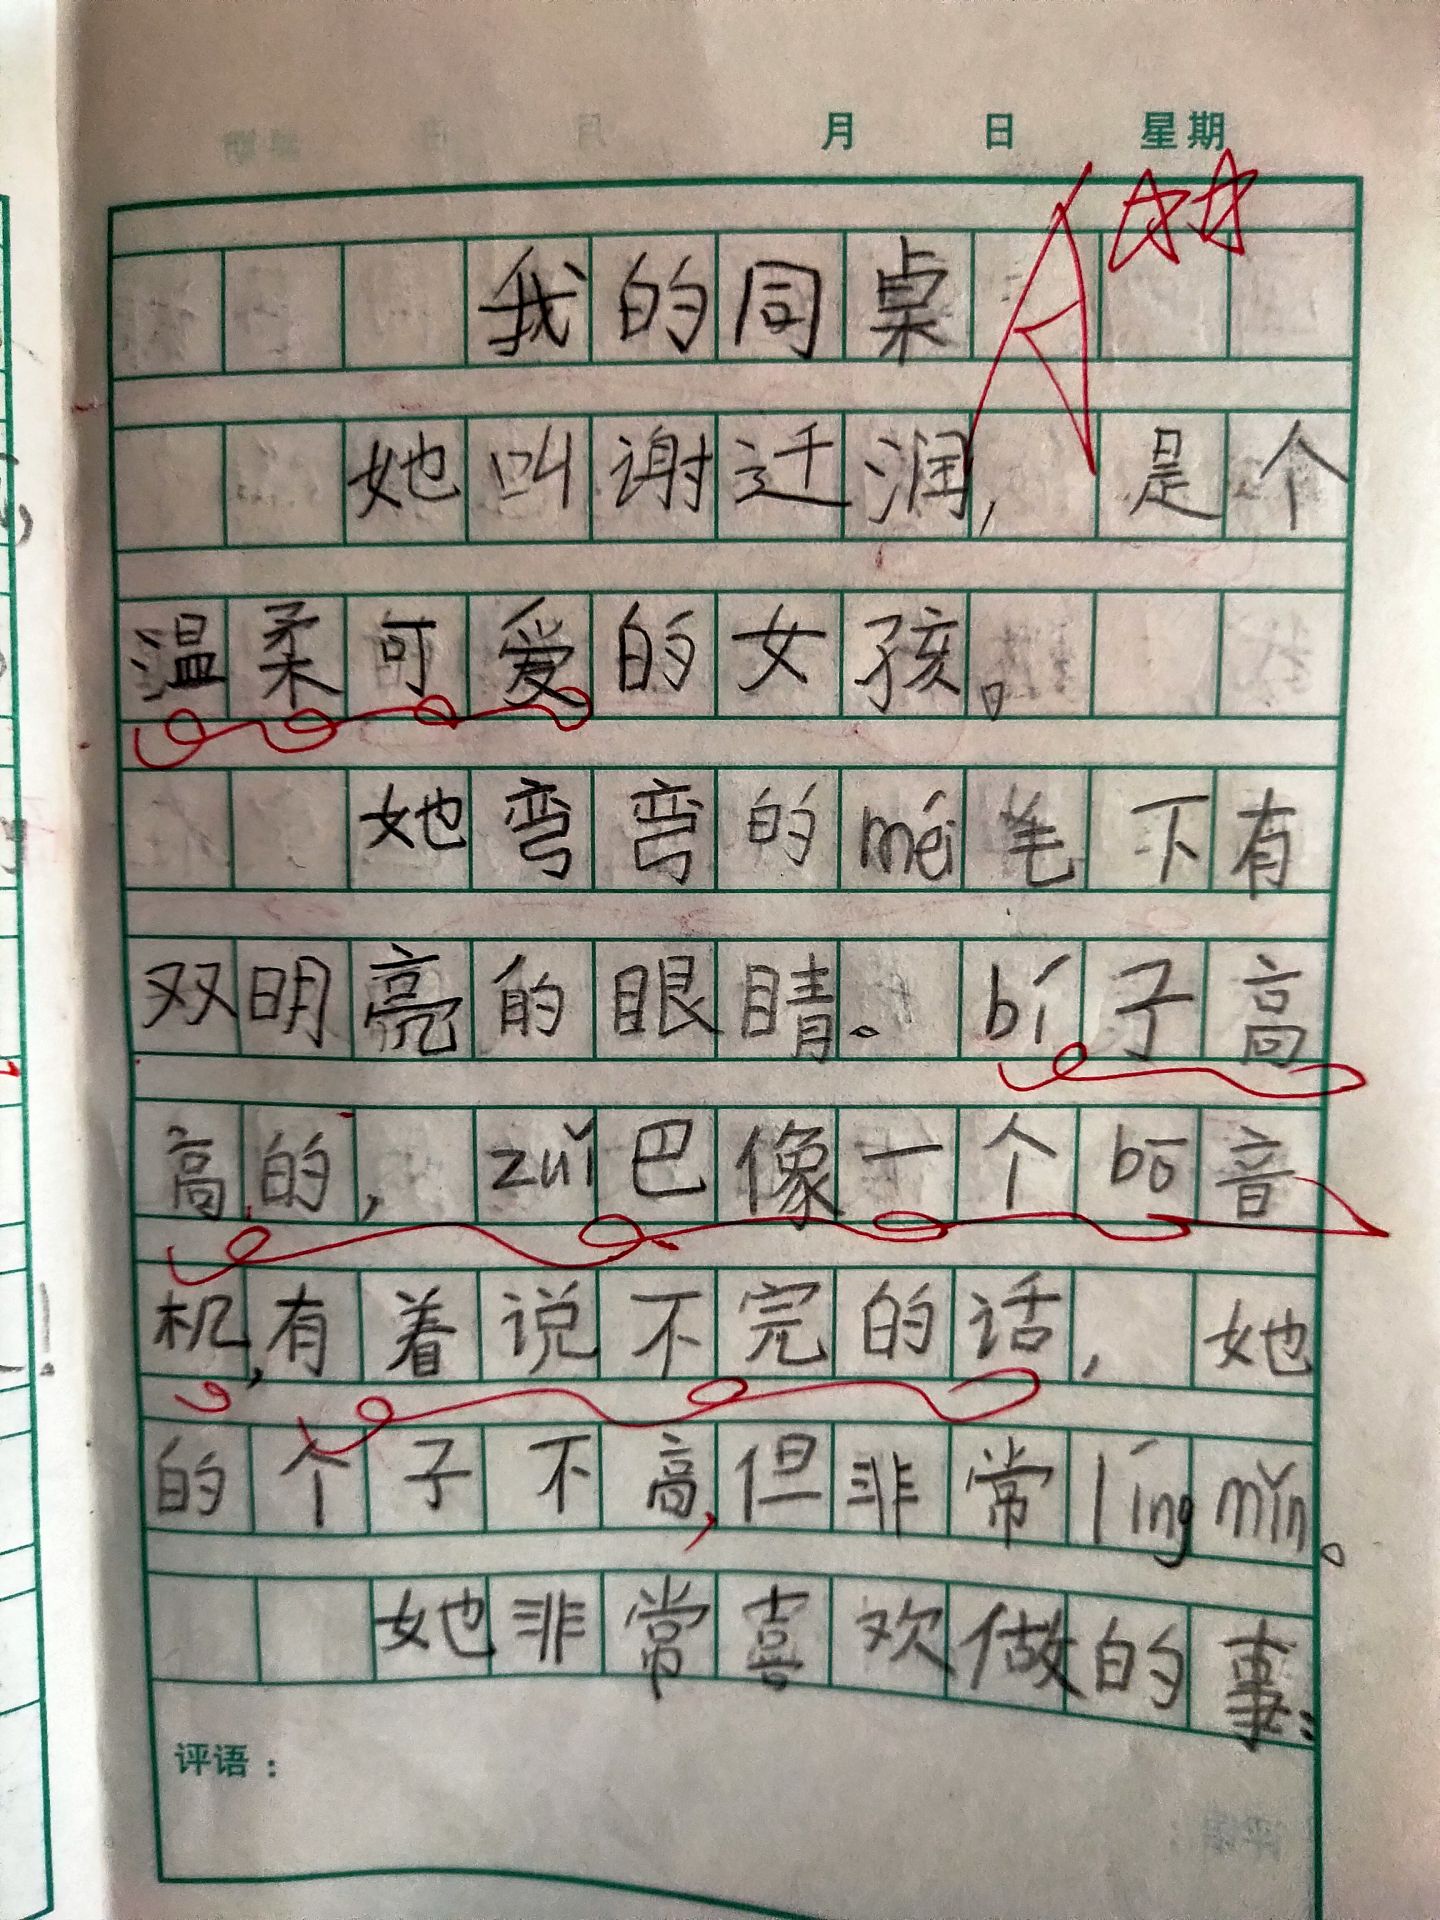 月 日 星期
我的同桌
她叫谢迁润，是个
温柔可爱的女孩。
她弯弯的méi毛下有
双明亮的眼睛。bí子高
高的，zuǐ巴像一个bō音
机，有着说不完的话，她
的个子不高，但非常líng mǐn。
她非常喜欢做的事：
评语：